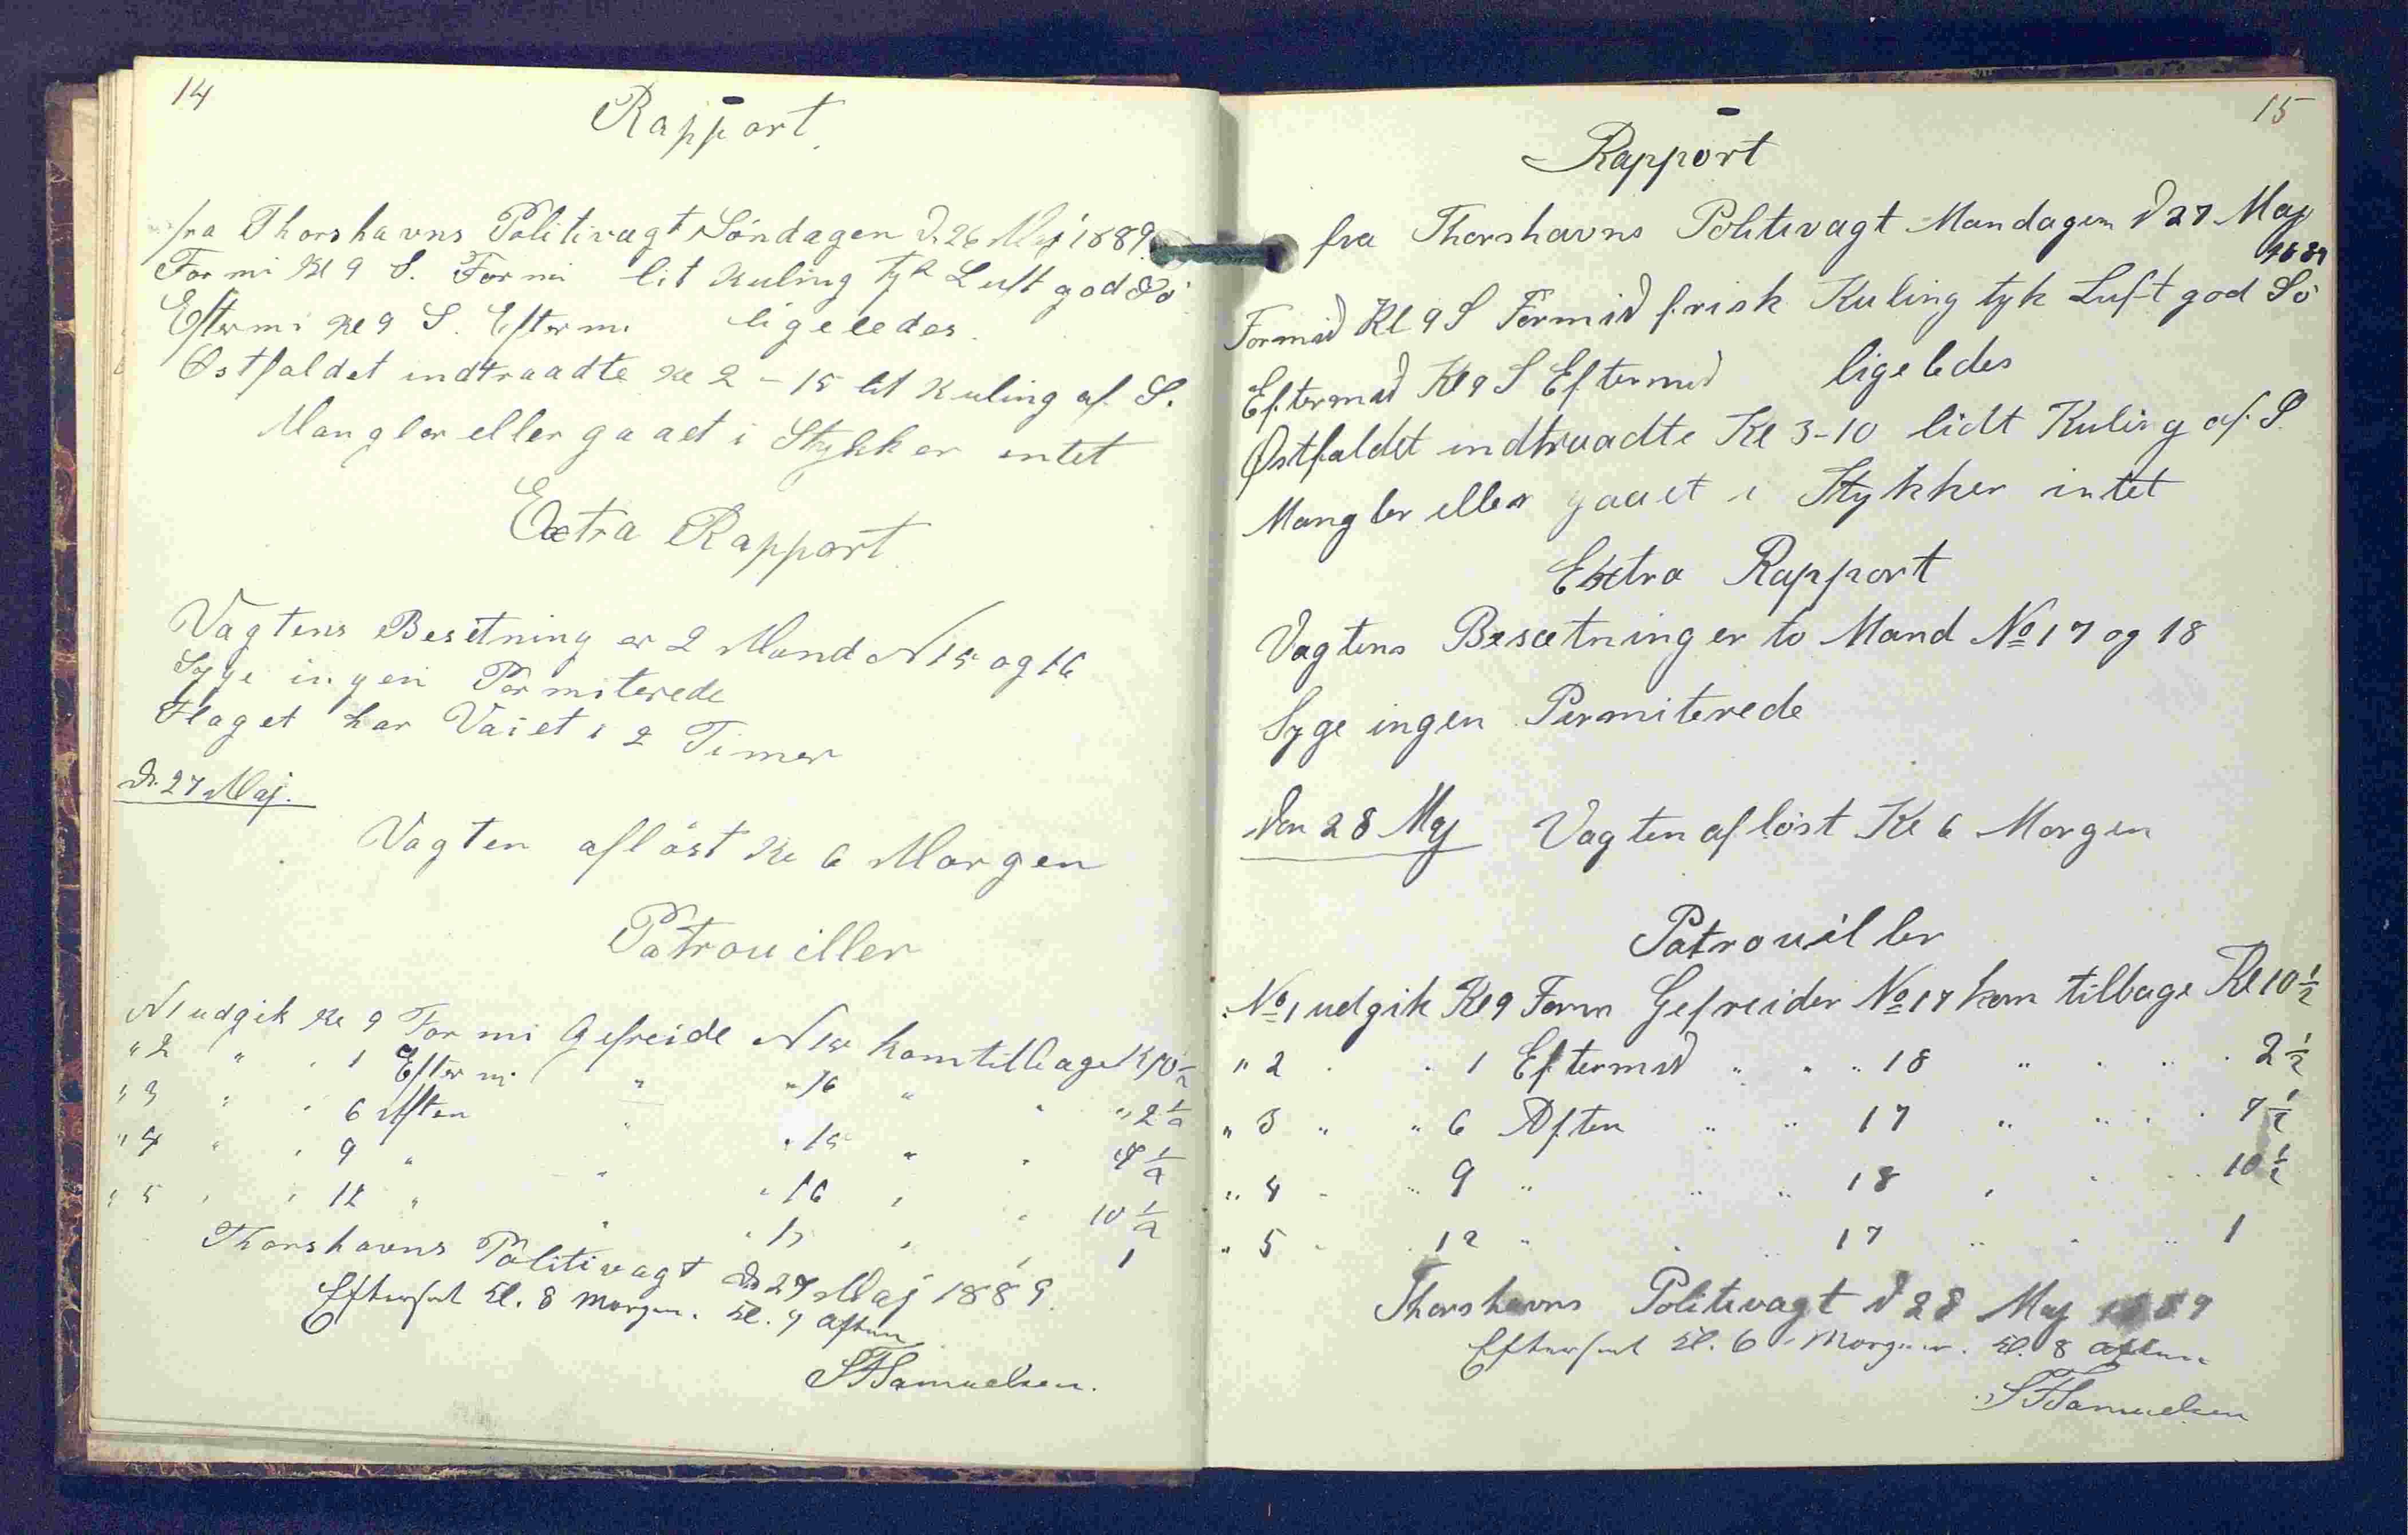 14
Rapport
fra Thorshavns Politivagt Söndagen D. 26 Maj 1889.
Formi Kl 9 S. Formi lit Kuling tyk Luft god Sö
Eftermi Kl 9 S. Eftermi ligeledes.
Østfaldet indtraadte Kl 2 - 15 lit Kuling af S.
Mangler eller gaaet i Stykker intet
Extra Rapport
Vagtens Besetning er 2 Mand N 15 og 16
Syge ingen Permiterede
Flaget har Vaiet i 2 Timer
D. 27 Maj.
Vagten aflöst Kl 6 Morgen
Patrouiller
N 1 udgik Kl 9 Formi Gefreide N 15 kom tilbage Kl 10 1/2
" 2 " " 1 Eftermi " " 16 " " " 2 1/2
" 3 " " 6 Aften " " 15 " " 7 1/2
" 4 " " 9 " " " 16 " " 10 1/2
" 5 " " 12 " " " 15 " " 1
Thorshavns Politivagt D. 27 Maj 1889.
Efterset Kl. 8 Morgen. Kl. 9 Aften
SFSamuelsen.
15
Rapport
fra Thorshavns Politivagt Mandagen D 27 Maj
1889
Formid Kl 9 S Formid frisk Kuling tyk Luft god Sö
Eftermid Kl 9 S Eftermid ligeledes
Østfaldet indtraadte Kl 3-10 lidt Kuling af S.
Mangler eller gaaet i Stykker intet
Extra Rapport
Vagtens Besætning er to Mand No 17 og 18
Syge ingen Permiterede
Den 28 Maj Vagten aflöst Kl 6 Morgen
Patrouiller
No 1 udgik Kl 9 Form Gefreider No 17 kom tilbage Kl 10 1/2
" 2 " " 1 Eftermid " " " 18 " " " " 2 1/2
" 3 " " 6 Aften " " 17 " " " " 7 1/2
" 4 " " 9 " " " 18 " " " 10 1/2
" 5 " " 12 " " " 17 " " " 1
Thorshavns Politivagt D 28 Maj 1889
Efterset Kl. 6 Morgen. Kl. 8 Aften
SFSamuelsen